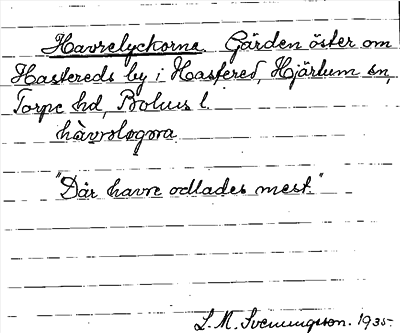 Havrelyckorna. Gärden öster om
Hastereds by i Hastered, Hjärtum sn,
Torpe hd, Bohus l.
hàvrologora
"Där havre odlades mest."
L. M. Svenungsson. 1935.